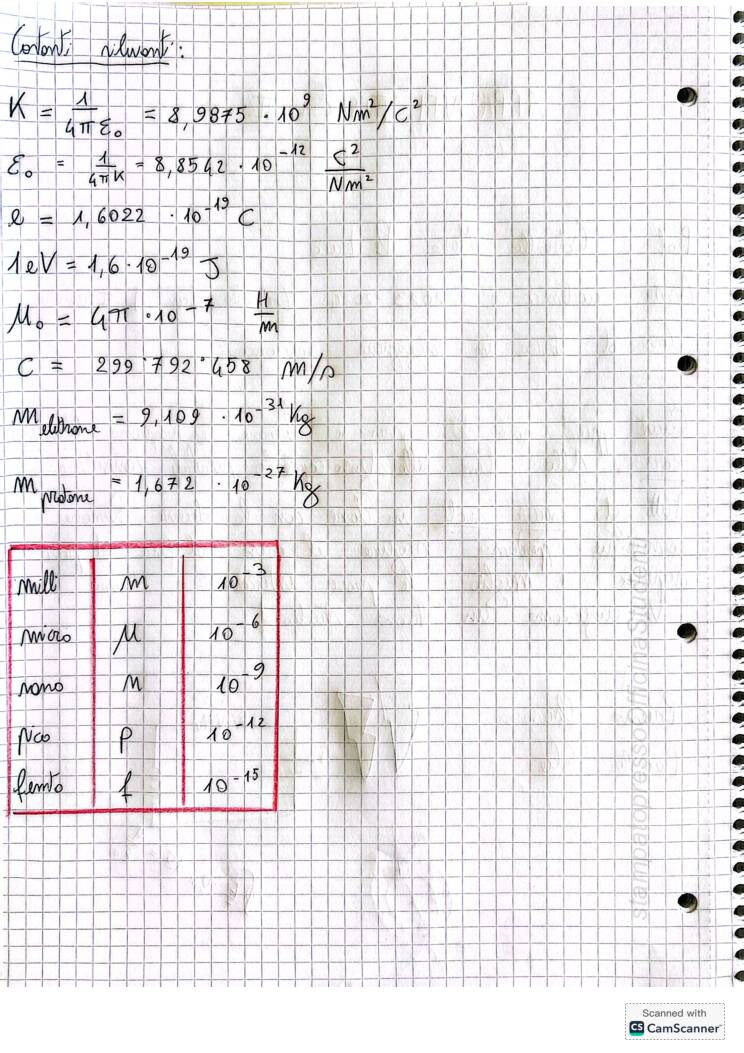 Costanti rilevanti:
K = 1/4πε₀ = 8,9875 · 10⁹ Nm²/C²
ε₀ = 1/4πK = 8,8542 · 10⁻¹² C²/Nm²
e = 1,6022 · 10⁻¹⁹ C
1eV = 1,6 · 10⁻¹⁹ J
μ₀ = 4π · 10⁻⁷ H/m
C = 299·792·458 m/s
m elettrone = 9,109 · 10⁻³¹ Kg
m protone = 1,672 · 10⁻²⁷ Kg
milli m 10⁻³
micro μ 10⁻⁶
nano n 10⁻⁹
pico p 10⁻¹²
femto f 10⁻¹⁵
stampatopressoOfficinaStudenti
Scanned with
CS CamScanner